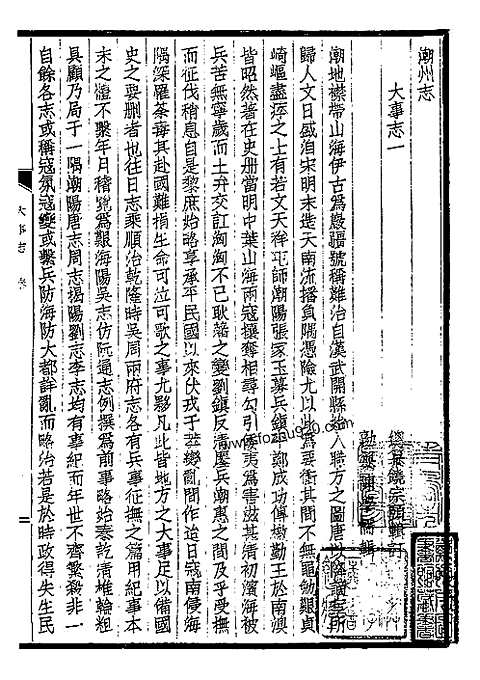 潮州志
大事志一
總纂饒宗頤輯訂
潮地襟帶山海伊古爲巖疆號稱難治自漢武開縣始入職方之圖唐以降謫宦所
歸人文日盛洎宋明末造天南流播負隅憑險尤以此爲要衝其間不無黽勉艱貞
崎嶇盡瘁之上有若文天祥屯師潮陽張家玉募兵鎮鄭成功傳檄勤王於南澳
皆昭然著在史册當明中葉山海兩寇攘奪相尋勾引倭夷爲害滋甚清初濱海被
兵苦無寧歲而土弁交訌洶洶不已耿藩之變劉鎮反清慶兵潮惠之了受撫
而征伐稍息自是黎庶始略享承平民國以來伏戎于莽變亂間作迨日寇南侵海
隅深罹荼毒其赴國難捐生命可泣可歌之事尤夥凡此皆地方之大事足以備國
史之要删者也往日志乘順治乾隆時吳周兩府志各有兵事征撫之篇用紀事本
末之體不繫年日稽覽爲艱海陽吳志仿阮通志例撰爲前事略始秦訖清堆輪粗
具顧乃局于一隅潮陽唐志周志揭陽劉志李志均有事紀而年世不齊繁殺非一
自餘各志或稱寇氛寇變或繫兵防海防大都詳亂而略治若是於時政得失生民
大事志
一
www.fozhu900.com